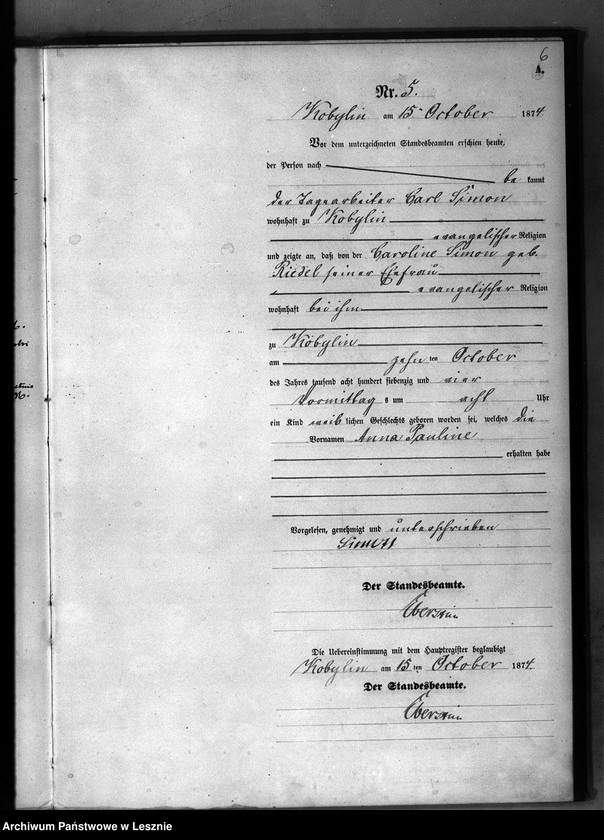 6
A.
Nr. 5.
Kobylin am 15 October 1874.
Vor dem unterzeichneten Standesbeamten erschien heute,
der Person nach
be kannt
der Tagearbeiter Carl Simon
wohnhaft zu Kobylin
evangelischer Religion
und zeigte an, daß von der Caroline Simon geb.
Riedel seiner Ehefrau
evangelischer Religion
wohnhaft bei ihm
zu Kobylin
am zehn ten October
des Jahres tausend acht hundert siebenzig und vier
Vormittag s um acht Uhr
ein Kind weib lichen Geschlechts geboren worden sei, welches die
Vornamen Anna Pauline
erhalten habe
Vorgelesen, genehmigt und unterschrieben
Simon
Der Standesbeamte.
Die Uebereinstimmung mit dem Hauptregister beglaubigt
Kobylin am 15 ten October 1874.
Der Standesbeamte.
Archiwum Państwowe w Lesznie